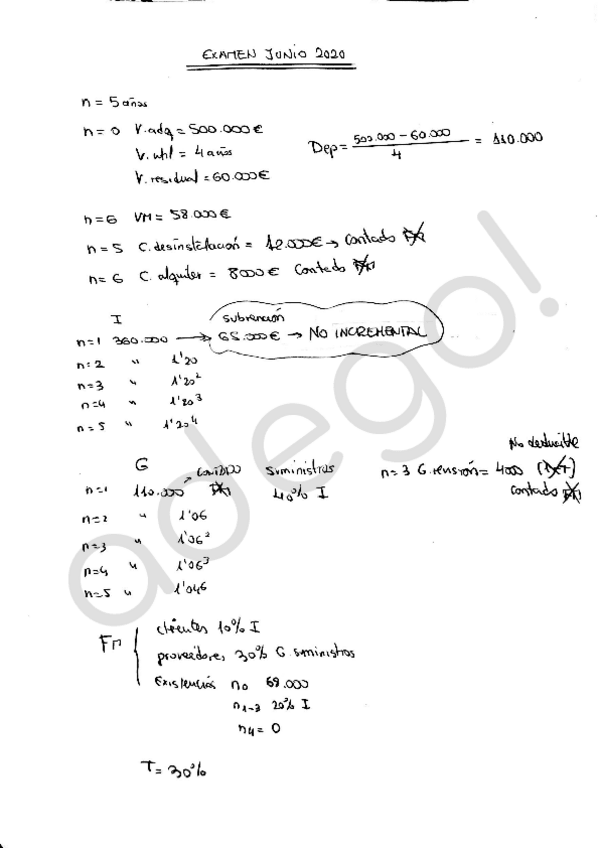 EXAMEN JUNIO 2020
n = 5 años
n = 0 V.adq = 500.000 €
V. util = 4 años
V. residual = 60.000 €
Dep = 500.000 - 60.000 / 4 = 110.000
n=6 VM = 58.000 €
n = 5 C. desinstalación = 12.000 € → contado
n = 6 C. alquiler = 8000 € Contado
I
n=1 360.000 → subvención 65.000 € → NO INCREMENTAL
n=2 " 1'20
n=3 " 1'20²
n=4 " 1'20³
n=5 " 1'20⁴
G
n=1 110.000 → contado suministros 40% I
n=2 " 1'06
n=3 " 1'06²
n=4 " 1'06³
n=5 " 1'046
n=3 G. revisión = 4000 No deducible
contado
Fm { clientes 10% I
proveedores 30% G. suministros
Existencias n0 69.000
n1-3 20% I
n4 = 0
T = 30%
adego!